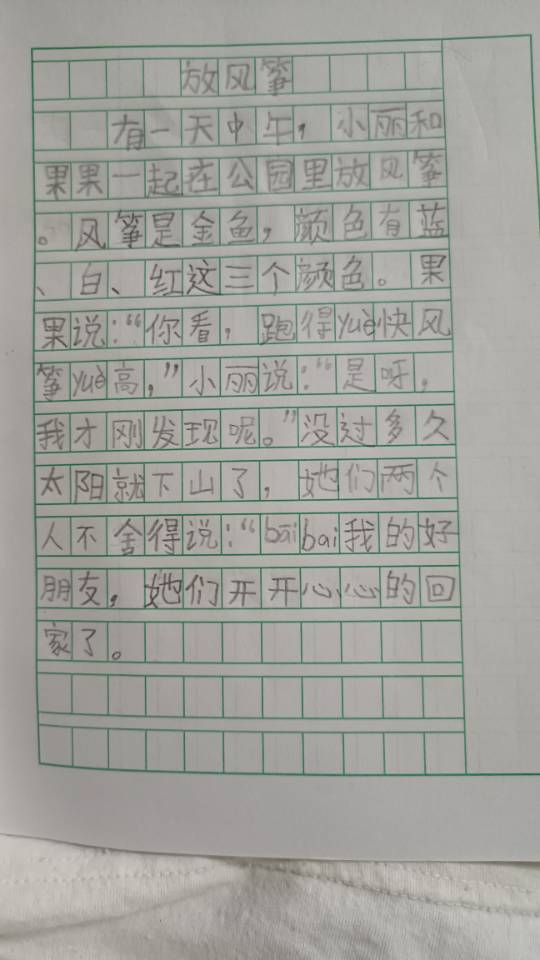 放风筝
有一天中午，小丽和
果果一起在公园里放风筝
。风筝是金鱼，颜色有蓝
、白、红这三个颜色。果
果说：“你看，跑得yuè快风
筝yuè高，”小丽说：“是呀，
我才刚发现呢。”没过多久
太阳就下山了，她们两个
人不舍得说：“bāibai我的好
朋友，她们开开心心的回
家了。